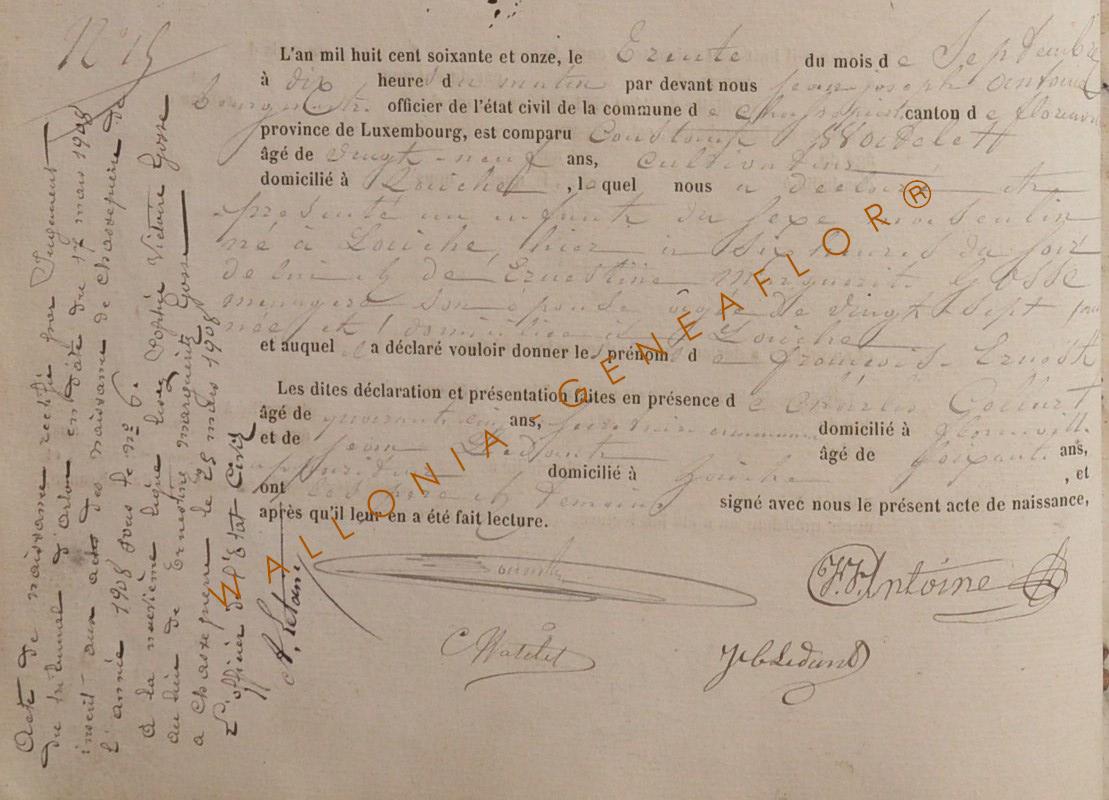 N° 15
L'an mil huit cent soixante et onze, le Trente du mois de Septembre
à dix heure du matin par devant nous Jean joseph Antoine
bourgmestre officier de l'état civil de la commune de canton de florenville
province de Luxembourg, est comparu Constant Watelet
âgé de vingt-neuf ans, cultivateur
domicilié à Laiche, lequel nous a déclaré et
présenté un enfant du sexe masculin
né à Laiche, hier à six heures du soir
de lui et de Ernestine Marguerite Gosse
ménagère son épouse âgée de vingt sept
née et domiciliée à Laiche
et auquel il a déclaré vouloir donner les prénom de françois-Ernest
Les dites déclaration et présentation faites en présence de Charles Collart
âgé de quarante cinq ans, secrétaire communal domicilié à florenville
et de jean Ledant âgé de soixante ans,
domicilié à , et
ont les père et témoins signé avec nous le présent acte de naissance,
après qu'il leur en a été fait lecture.
J.J. Antoine
C Watelet
J b Ledant
Acte de naissance rectifié par Jugement
du tribunal d'Arlon en date du 17 mars 1908
inscrit aux actes des naissances de Chassepierre de
l'année 1908 sous le n° 6.
à la neuvième ligne lisez Sophie Victoire Gosse
au lieu de Ernestine Marguerite Gosse
à Chassepierre le 25 mars 1908
L'officier de l'Etat Civil
WALLONIA-GENEAFLOR®